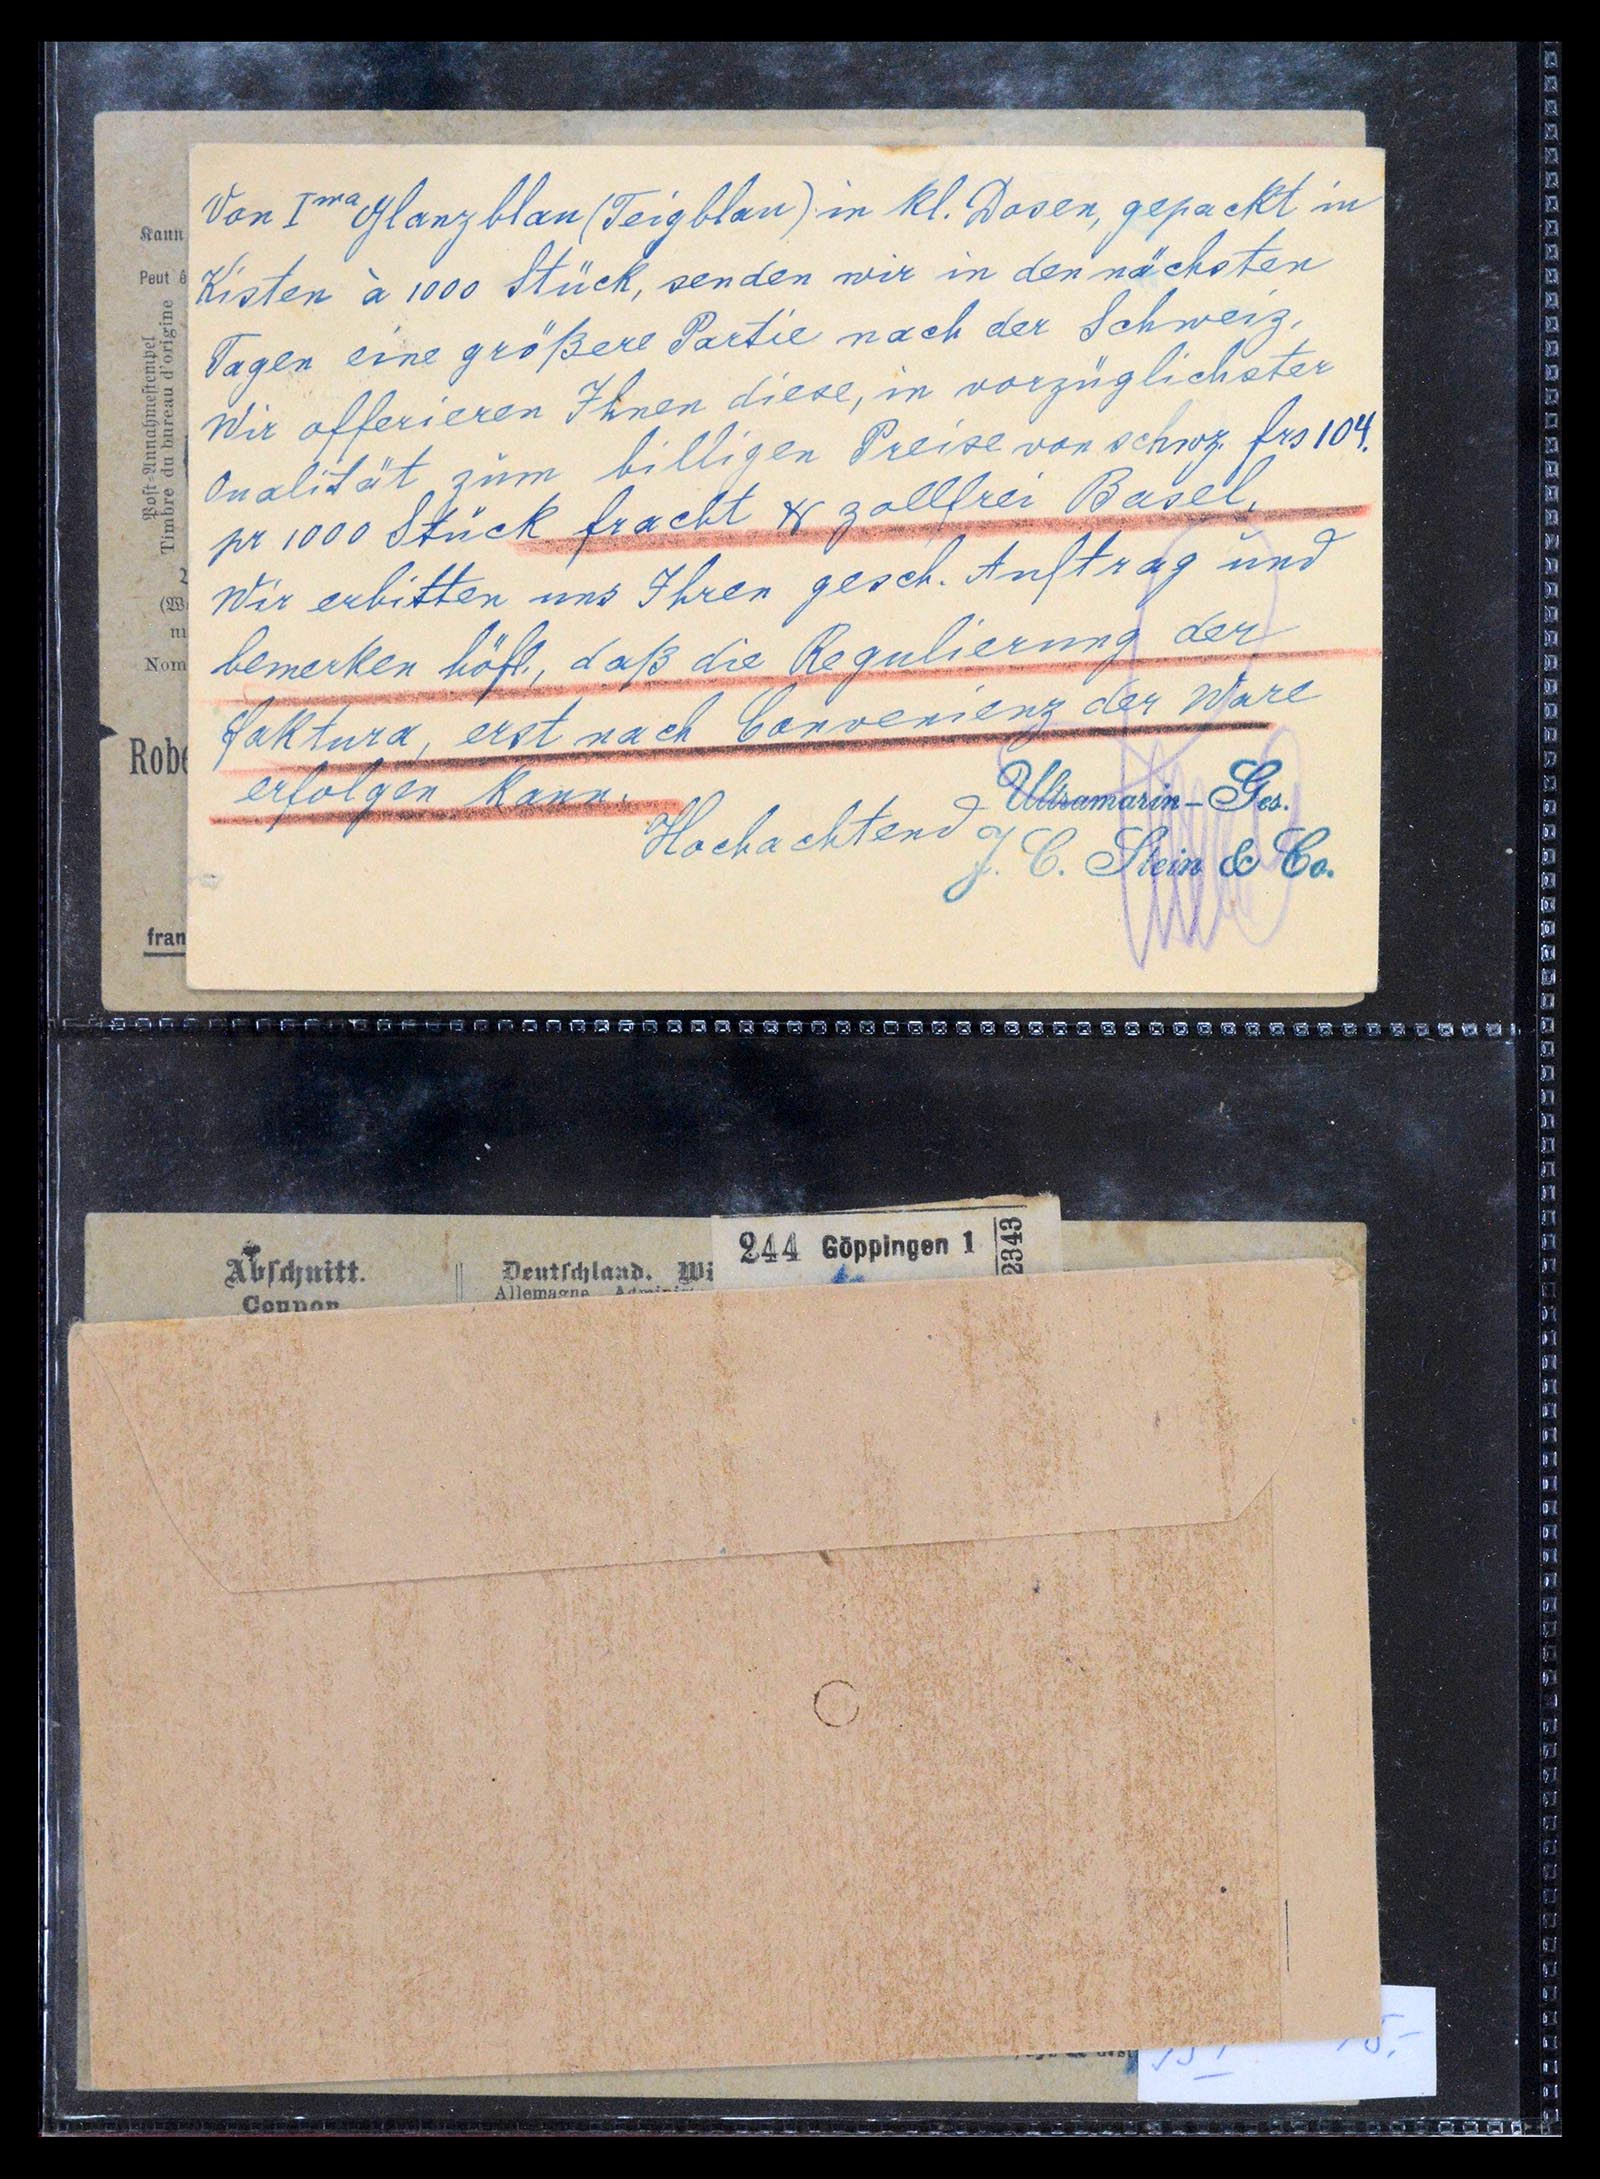 Von I^ma Glanzblau (Teigblau) in kl. Dosen, gepackt in
Kisten à 1000 Stück, senden wir in den nächsten
Tagen eine größere Partie nach der Schweiz.
Wir offerieren Ihnen diese, in vorzüglichster
Qualität zum billigen Preise von schwz. frs 104.
pr 1000 Stück fracht & zollfrei Basel.
Wir erbitten uns Ihren gesch. Auftrag und
bemerken höfl., daß die Regulierung der
Faktura, erst nach Convenienz der Ware
erfolgen kann.
Hochachtend
Ultramarin-Ges.
J. C. Stein & Co.
Kann
Peut ê
Post-Annahmestempel
Timbre du bureau d'origine
(W
Nom
Robe
fran
244 Göppingen 1
2343
Abschnitt.
Coupon
Deutschland. Wi
Allemagne. Adminis